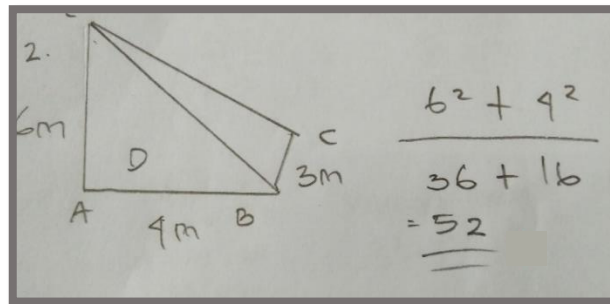 2.
6m
D
C
3m
A
4m
B
6² + 4²
36 + 16
= 52